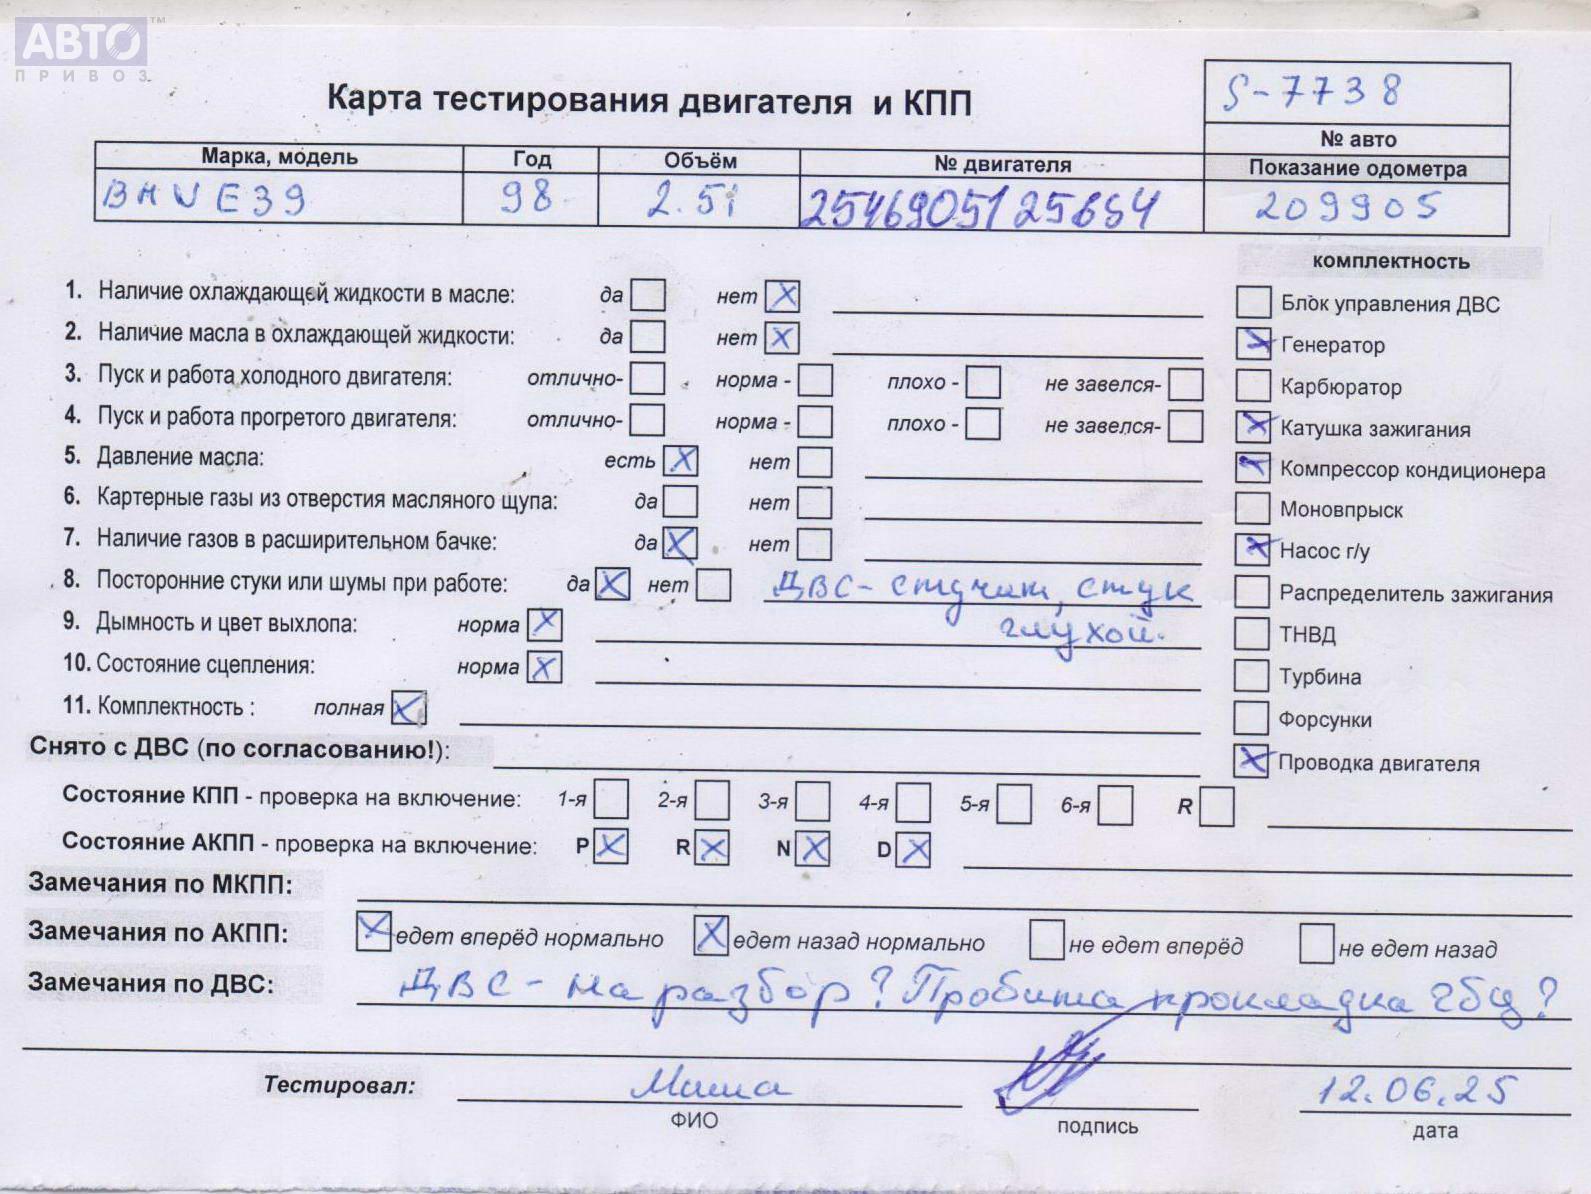 АВТО™
ПРИВОЗ
Карта тестирования двигателя и КПП
S-7738
№ авто
Марка, модель Год Объём № двигателя Показание одометра
BMW E39 98 2.5i 209905
комплектность
1. Наличие охлаждающей жидкости в масле: да нет X Блок управления ДВС
2. Наличие масла в охлаждающей жидкости: да нет X X Генератор
3. Пуск и работа холодного двигателя: отлично- норма - плохо - не завелся- Карбюратор
4. Пуск и работа прогретого двигателя: отлично- норма - плохо - не завелся- X Катушка зажигания
5. Давление масла: есть X нет X Компрессор кондиционера
6. Картерные газы из отверстия масляного щупа: да нет Моновпрыск
7. Наличие газов в расширительном бачке: да X нет X Насос г/у
8. Посторонние стуки или шумы при работе: да X нет ДВС - стучит, стук Распределитель зажигания
глухой.
9. Дымность и цвет выхлопа: норма X ТНВД
10. Состояние сцепления: норма X Турбина
11. Комплектность : полная X Форсунки
Снято с ДВС (по согласованию!): X Проводка двигателя
Состояние КПП - проверка на включение: 1-я 2-я 3-я 4-я 5-я 6-я R
Состояние АКПП - проверка на включение: P X R X N X D X
Замечания по МКПП:
Замечания по АКПП: X едет вперёд нормально X едет назад нормально не едет вперёд не едет назад
Замечания по ДВС: ДВС - на разбор? Пробита прокладка гбц?
Тестировал: 12.06.25
ФИО подпись дата